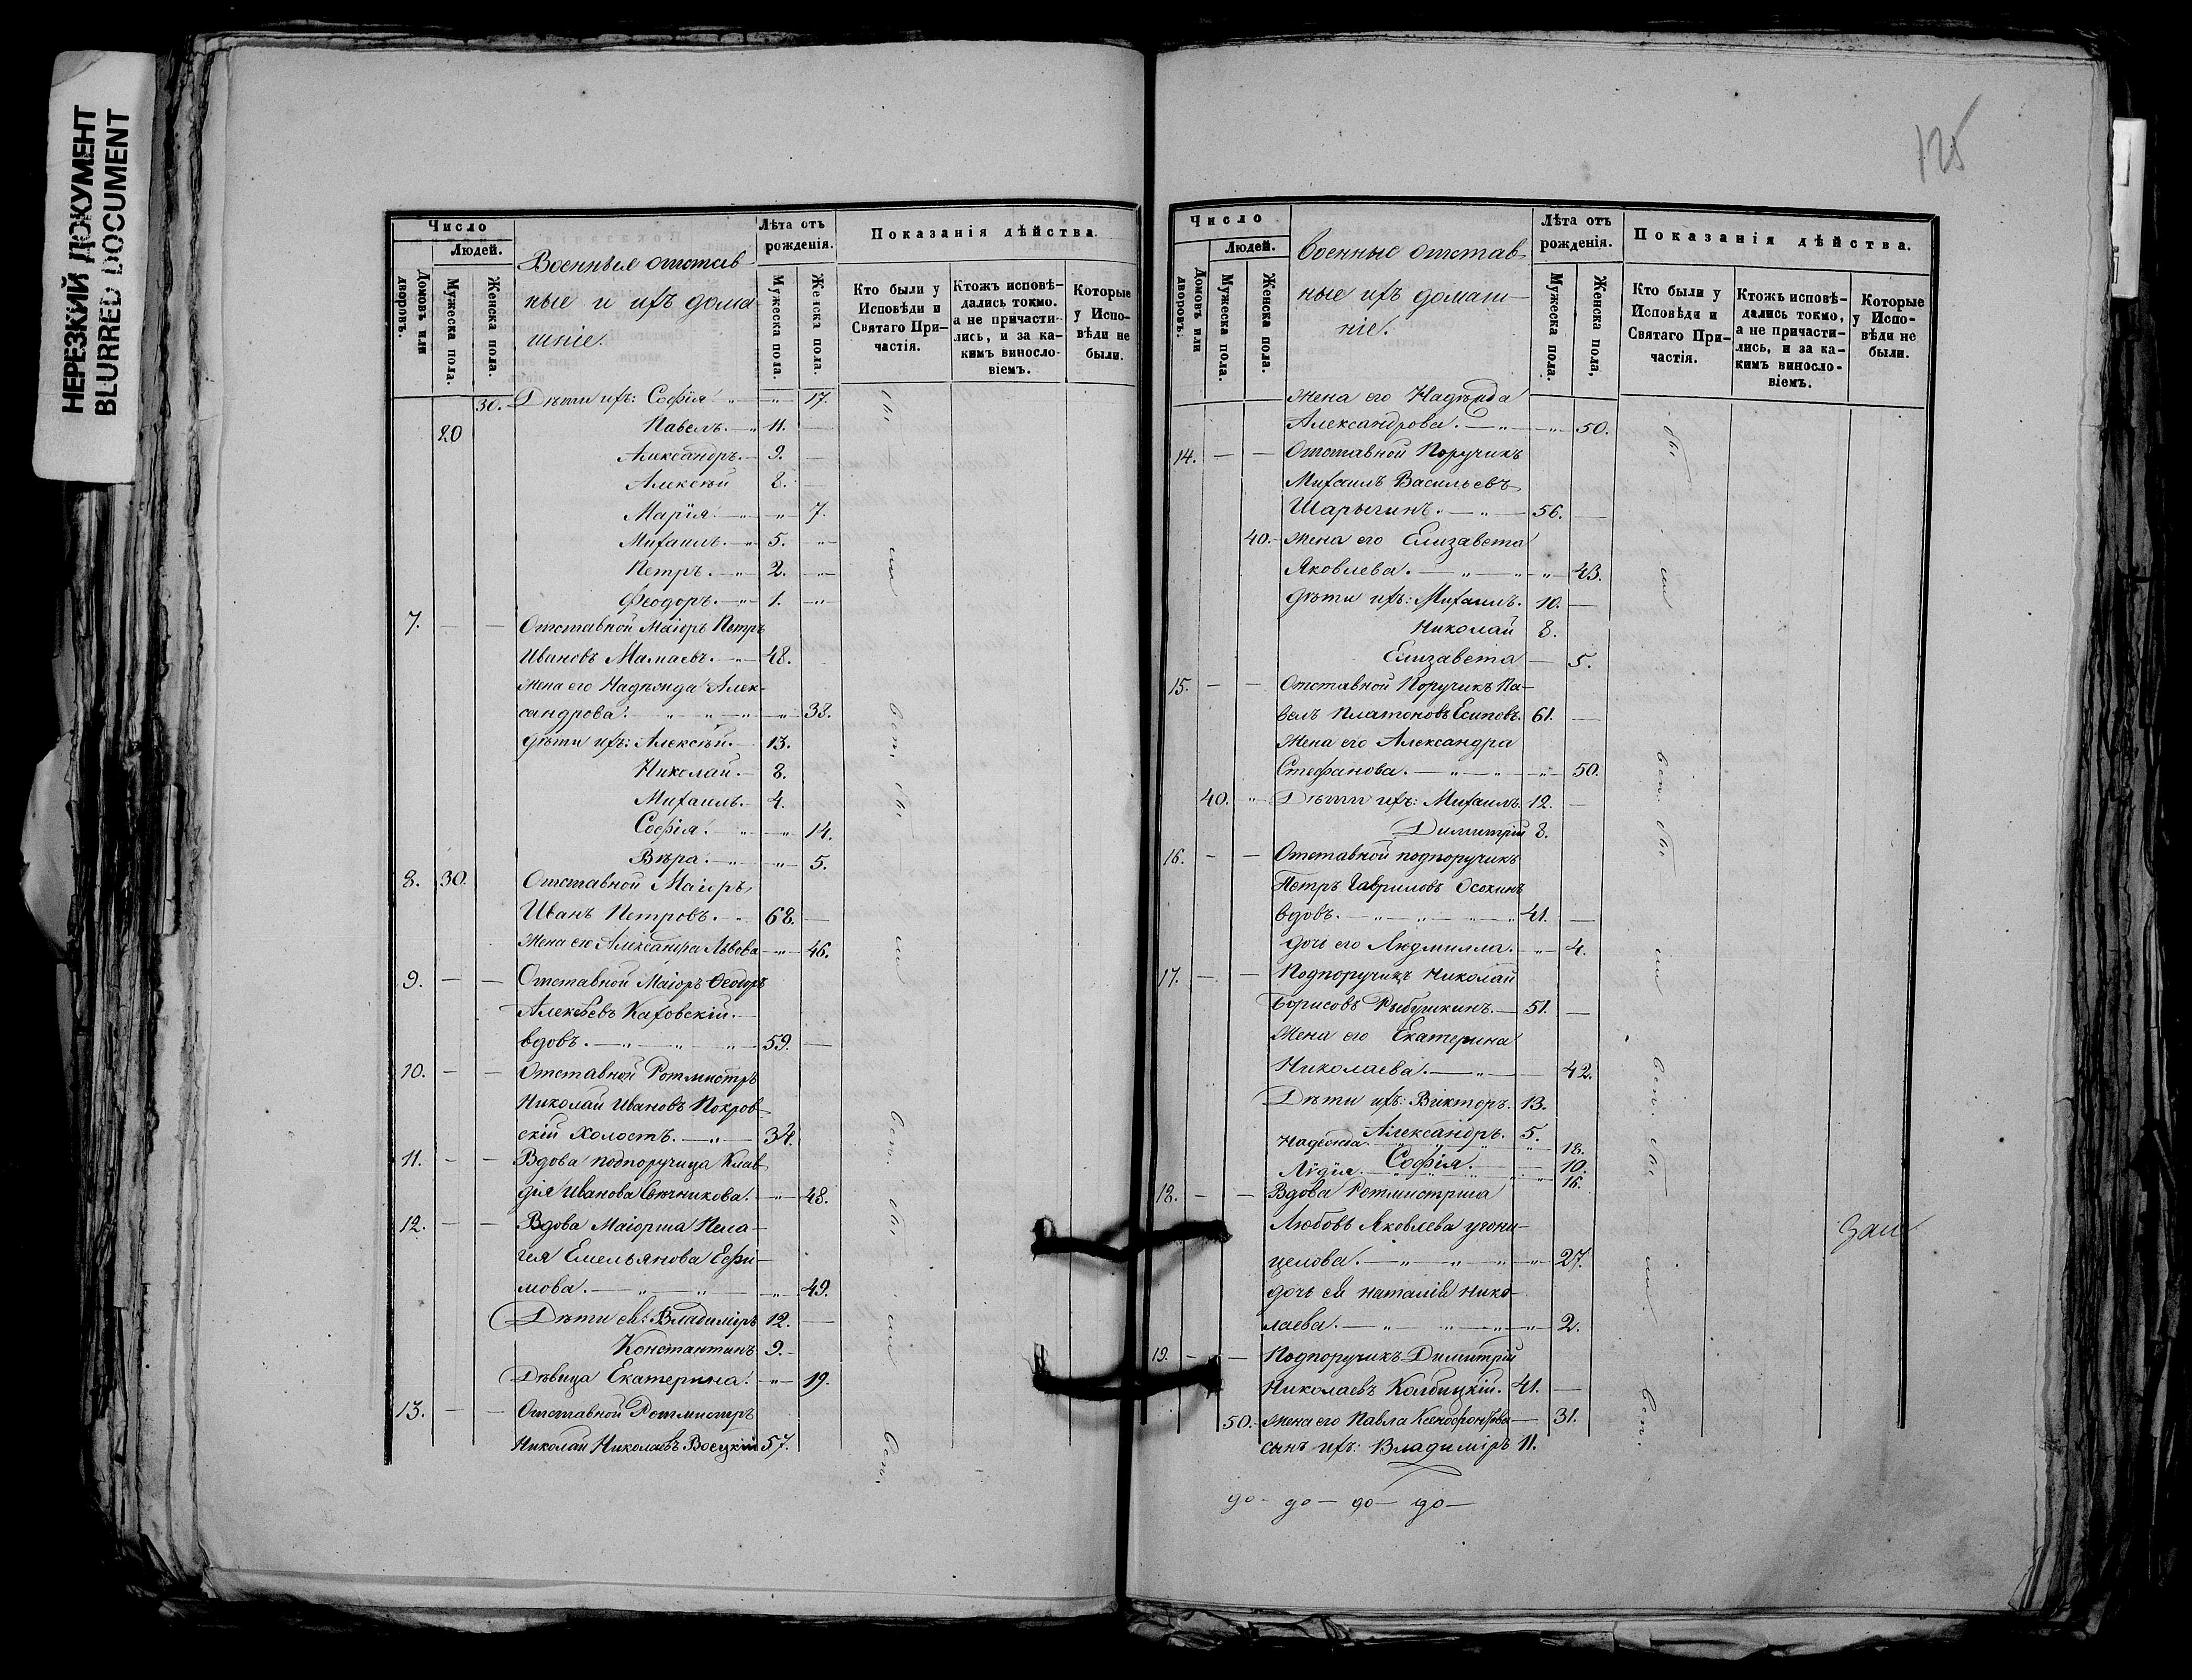 НЕРЕЗКИЙ ДОКУМЕНТ
BLURRED DOCUMENT
Число
Людей.
Домовъ или дворовъ.
Мужеска пола.
Женска пола.
Военные отстав
ные и ихъ дома
шніе.
Лѣта отъ рожденія.
Мужеска пола.
Женска пола.
Показанія дѣйства.
Кто были у Исповѣди и Святаго Причастія.
Ктожъ исповѣдались токмо. а не причастились, и за какимъ винословіемъ.
Которые у Исповѣди не были.
30. Дѣти ихъ: Софія " — " — 17.
20 Павелъ. — " 11. —
Александръ. — 9. —
Алексѣй 8. —
Марія — " — " — 7.
Михаилъ. — " 5. — "
Петръ. — " — 2. — " —
Феодоръ. — " — 1. — " —
7. — — Отставной Маіоръ Петръ
Ивановъ Мамаевъ. — " — 48.
Жена его Надежда Алек-
сандрова. — " — " — " — " — 38.
Дѣти ихъ: Алексѣй. — 13.
Николай. — 8.
Михаилъ. — 4.
Софія. — " — " — 14.
Вѣра. — " — " — 5.
8. 30. Отставной Маіоръ
Иванъ Петровъ. — " 68. —
Жена его Александра Львова — " — 46.
9. — — Отставной Маіоръ Феодоръ
Алексѣевъ Каховскій. —
вдовъ. — " — " — " — 59. —
10. — — Отставной Ротмистръ
Николай Ивановъ Покров-
скій Холостъ. — " — 34.
11. — — Вдова подпоручица Клав-
дія Иванова Свечникова. — " — 48.
12. — — Вдова Маіорша Пела-
гея Емельянова Ефи-
мова. — " — " — " — 49.
Дѣти ея: Владиміръ 12. —
Константинъ 9. —
Дѣвица Екатерина. — " — 19.
13. — — Отставной Ротмистръ
Николай Николаевъ 57.
бы
ли
всп.
бы
ли
всп.
бы
ли
всп.
125
Число
Людей.
Домовъ или дворовъ.
Мужеска пола.
Женска пола.
военные отстав-
ные ихъ домаш-
ніе.
Лѣта отъ рожденія.
Мужеска пола.
Женска пола,
Показанія дѣйства.
Кто были у Исповѣди и Святаго Причастія.
Ктожъ исповѣдались токмо, а не причастились, и за какимъ винословіемъ.
Которые у Исповѣди не были.
Жена его Надежда
Александрова. — " — " — 50.
14. — — Отставной Поручикъ
Михаилъ Васильевъ
Шарыгинъ. — " — 56. —
40. — Жена его Елизавета
Яковлева. — " — " — " — 43.
Дѣти ихъ: Михаилъ. 10. —
Николай 8.
Елизавета — 5.
15. — — Отставной Поручикъ Па-
велъ Платоновъ Есиповъ. 61. —
Жена его Александра
Стефанова. — " — " — " — 50.
40. " — Дѣти ихъ: Михаилъ 12. —
Димитрій 8.
16. — — Отставной подпоручикъ
Петръ Гавриловъ Осокинъ
вдовъ. — " — " — " — " 41. —
дочь его Людмилла. — " — 4.
17. — — Подпоручикъ Николай
Борисовъ Рыбушкинъ. — 51. —
Жена его Екатерина
Николаева. — " — — 42.
Дѣти ихъ: Викторъ. 13.
Александръ. 5.
Надежда. " 18.
Софія. — — 10.
Лидія. — " 16.
18. — — Вдова Ротмистрша
Любовь Яковлева
целова. — " — " — " — " — 27.
дочь ея Наталія Нико-
лаева. — " — " — " — " — 2.
19. — — Подпоручикъ Димитрій
Николаевъ Колбицкій. 41. —
50. — Жена его Павла Ксенофонтова — 31.
сынъ ихъ: Владиміръ 11.
бы
ли
всп.
бы
ли
всп.
бы
ли
всп.
до — до — до — до —